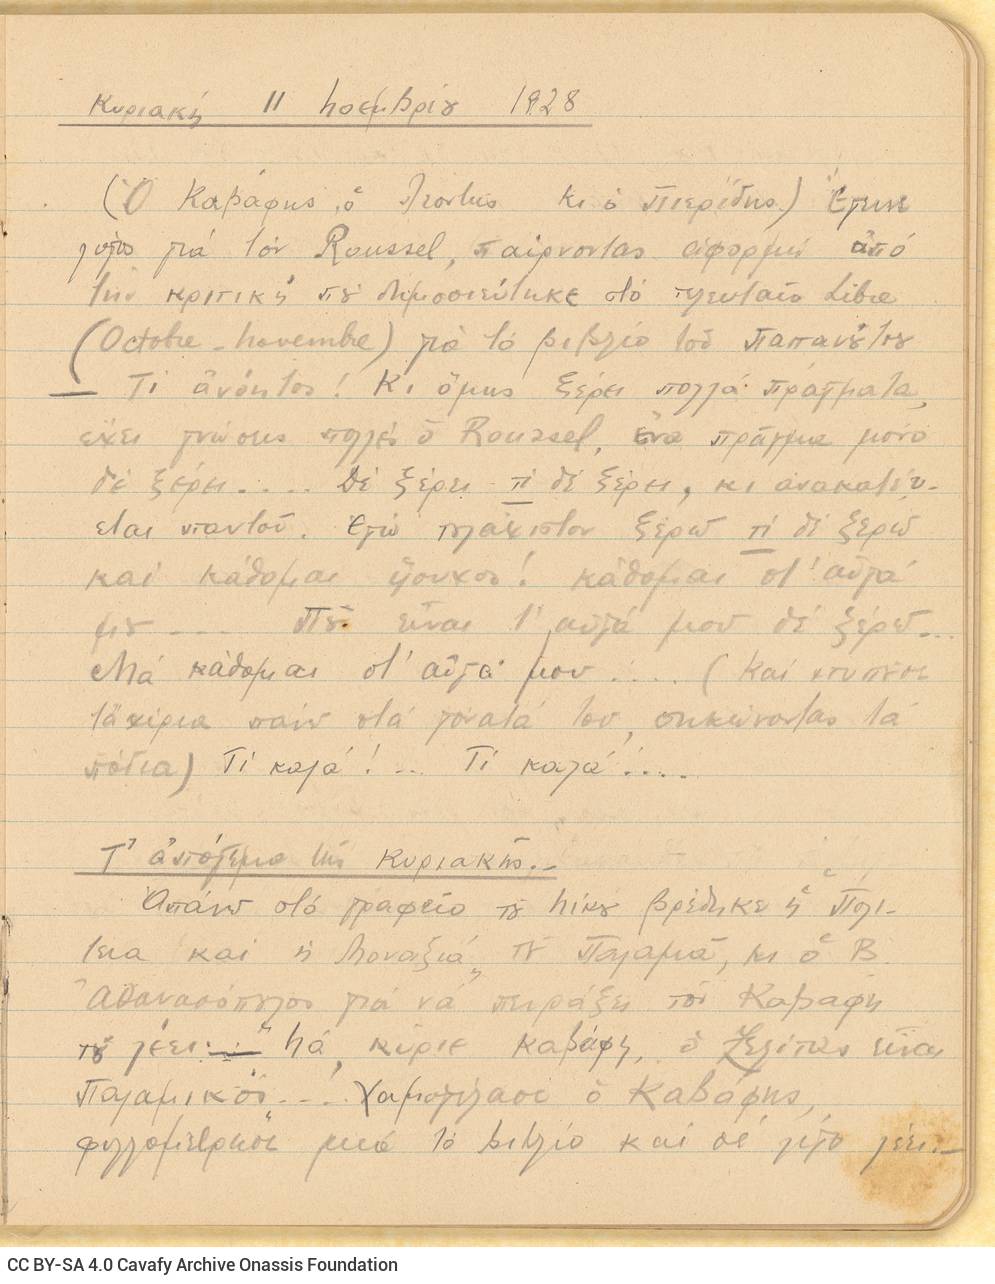 Κυριακή 11 Νοεμβρίου 1928
(Ὁ Καβάφης, ὁ Λεοντης κι ὁ Πιερίδης) Ἔγεινε
λόγος γιά τόν Roussel, παίρνοντας ἀφορμή ἀπό
τήν κριτική πού δημοσιεύτηκε στό τελευταῖο Libre
(Octobre - Novembre) γιά τό βιβλίο τοῦ Παπανούτσου
— Τί ἀνόητος! Κι ὅμως ξέρει πολλά πράγματα,
ἔχει γνώσεις πολλές ὁ Roussel, ἕνα πρᾶγμα μόνο
δέ ξέρει.... Δέ ξέρει τί δέ ξέρει, κι ἀνακατεύ-
εται παντοῦ. Ἐγώ τουλάχιστον ξέρω τί δέ ξέρω
καί κάθομαι ἥσυχος! κάθομαι στ' αὐγά
μου .... Ποῦ εἶναι τ' αὐγά μου δέ ξέρω...
Μά κάθομαι στ' αὐγά μου ..... (Καί κτυπῶσε
τά χέρια πάνω στά γόνατά του, σηκώνοντας τά
πόδια) Τί καλά! ... Τί καλά! ....
Τ' ἀπόγεμα τῆς Κυριακῆς.-
Ἀπάνω στό γραφεῖο τοῦ Νίκου βρέθηκε ἡ "Πολι-
τεία καί ἡ Μοναξιά" τοῦ Παλαμᾶ, κι ὁ Β.
Ἀθανασόπουλος γιά νά πειράξει τόν Καβάφη
τοῦ λέει: — Νά, κύριε Καβάφη, ὁ Ζελίτας εἶναι
Παλαμικός.... Χαμογέλασε ὁ Καβάφης,
φυλλομέτρησε μιά τό βιβλίο καί σέ λίγο λέει:—
CC BY-SA 4.0 Cavafy Archive Onassis Foundation